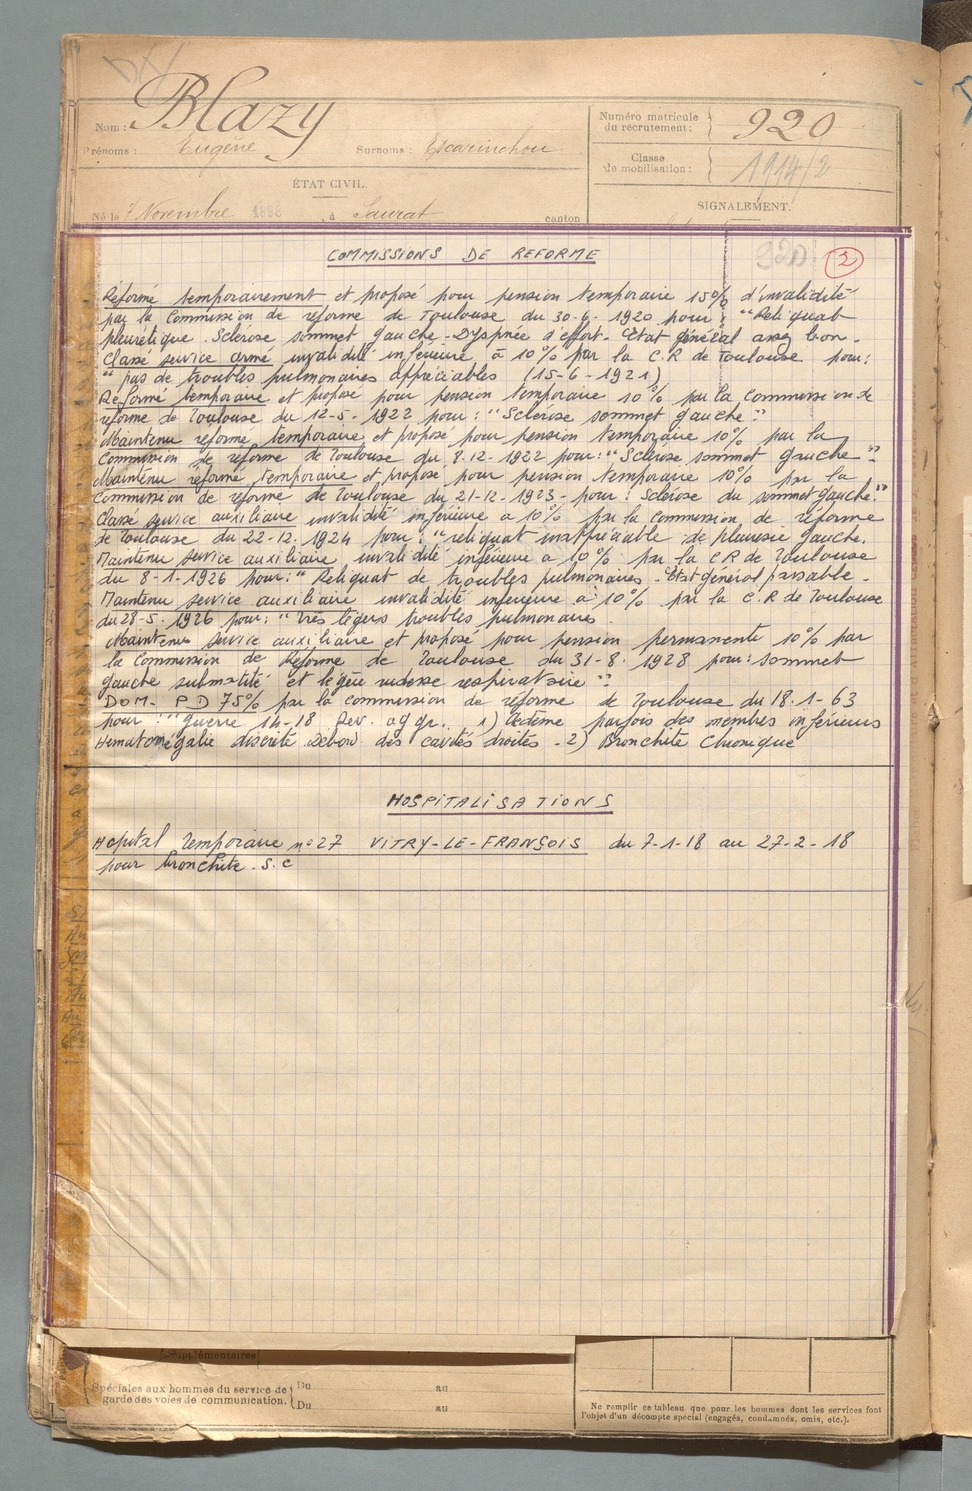 Blazy
Nom :
Prénoms : Eugène Surnoms : Escarinchou
Numéro matricule du recrutement : 920
Classe de mobilisation : 1914/2
ÉTAT CIVIL.
SIGNALEMENT.
Né le 7 Novembre 1893, à Saurat canton
920 2
COMMISSIONS DE REFORME
Réformé temporairement et proposé pour pension temporaire 15% d'invalidité
par la Commission de réforme de Toulouse du 30-6-1920 pour : "Reliquat
pleurétique. Sclérose sommet gauche - Dyspnée d'effort - Etat général assez bon -
Classé service armé invalidité inférieure à 10% par la C.R de Toulouse pour :
"pas de troubles pulmonaires appréciables (15-6-1921)
Réformé temporaire et proposé pour pension temporaire 10% par la Commission de
réforme de Toulouse du 12-5-1922 pour : "Sclérose sommet gauche"
Maintenu réformé temporaire et proposé pour pension temporaire 10% par la
Commission de réforme de Toulouse du 8-12-1922 pour : "Sclérose sommet gauche" -
Maintenu réformé temporaire et proposé pour pension temporaire 10% par la
Commission de réforme de Toulouse du 21-12-1923 - pour : Sclérose du sommet gauche."
Classé service auxiliaire invalidité inférieure à 10% par la commission de réforme
de Toulouse du 22-12-1924 pour : "reliquat inappréciable de pleurésie gauche.
Maintenu service auxiliaire invalidité inférieure à 10% par la C R de Toulouse
du 8-1-1926 pour : "Reliquat de troubles pulmonaires - Etat général passable -
Maintenu service auxiliaire invalidité inférieure à 10% par la C.R de Toulouse
du 28-5-1926 pour : "Très légers troubles pulmonaires.
Maintenu service auxiliaire et proposé pour pension permanente 10% par
la Commission de Réforme de Toulouse du 31-8-1928 pour : sommet
gauche submatité et légère rudesse respiratoire"
DOM - P D 75% par la commission de réforme de Toulouse du 18-1-63
pour : "Guerre 14-18 Rev. aggr. 1) Œdème parfois des membres inférieurs
discrète Débord des cavités droites - 2) Bronchite Chronique
HOSPITALISATIONS
Hopital Temporaire n° 27 VITRY-LE-FRANSOIS du 7-1-18 au 27-2-18
pour bronchite - S. C
supplémentaires
Spéciales aux hommes du service de garde des voies de communication. Du au
Du au
Ne remplir ce tableau que pour les hommes dont les services font
l'objet d'un décompte spécial (engagés, condamnés, omis, etc.).